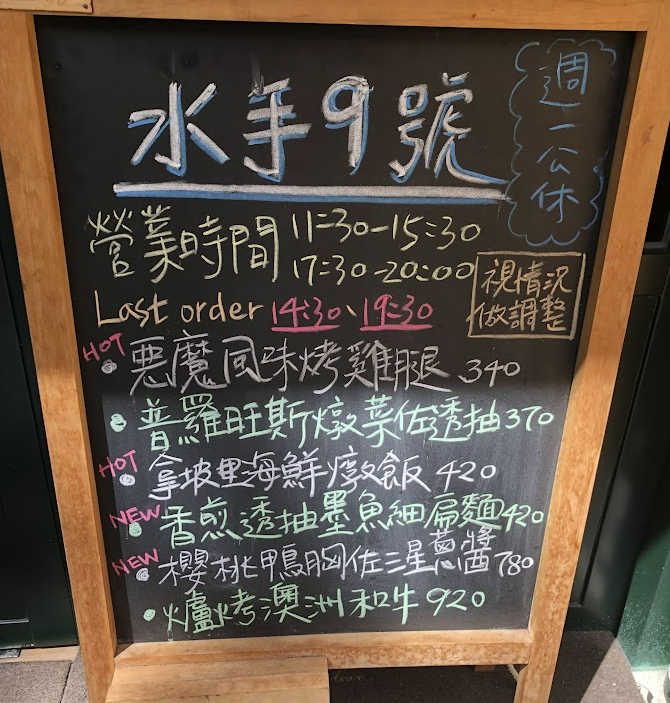 水手9號
週一公休
營業時間 11:30-15:30
17:30-20:00
視情況
做調整
Last order 14:30、19:30
HOT 惡魔風味烤雞腿 340
普羅旺斯燉菜佐透抽 370
HOT 拿坡里海鮮燉飯 420
NEW 香煎透抽墨魚細扁麵 420
NEW 櫻桃鴨胸佐三星蔥醬 780
爐烤澳洲和牛 920